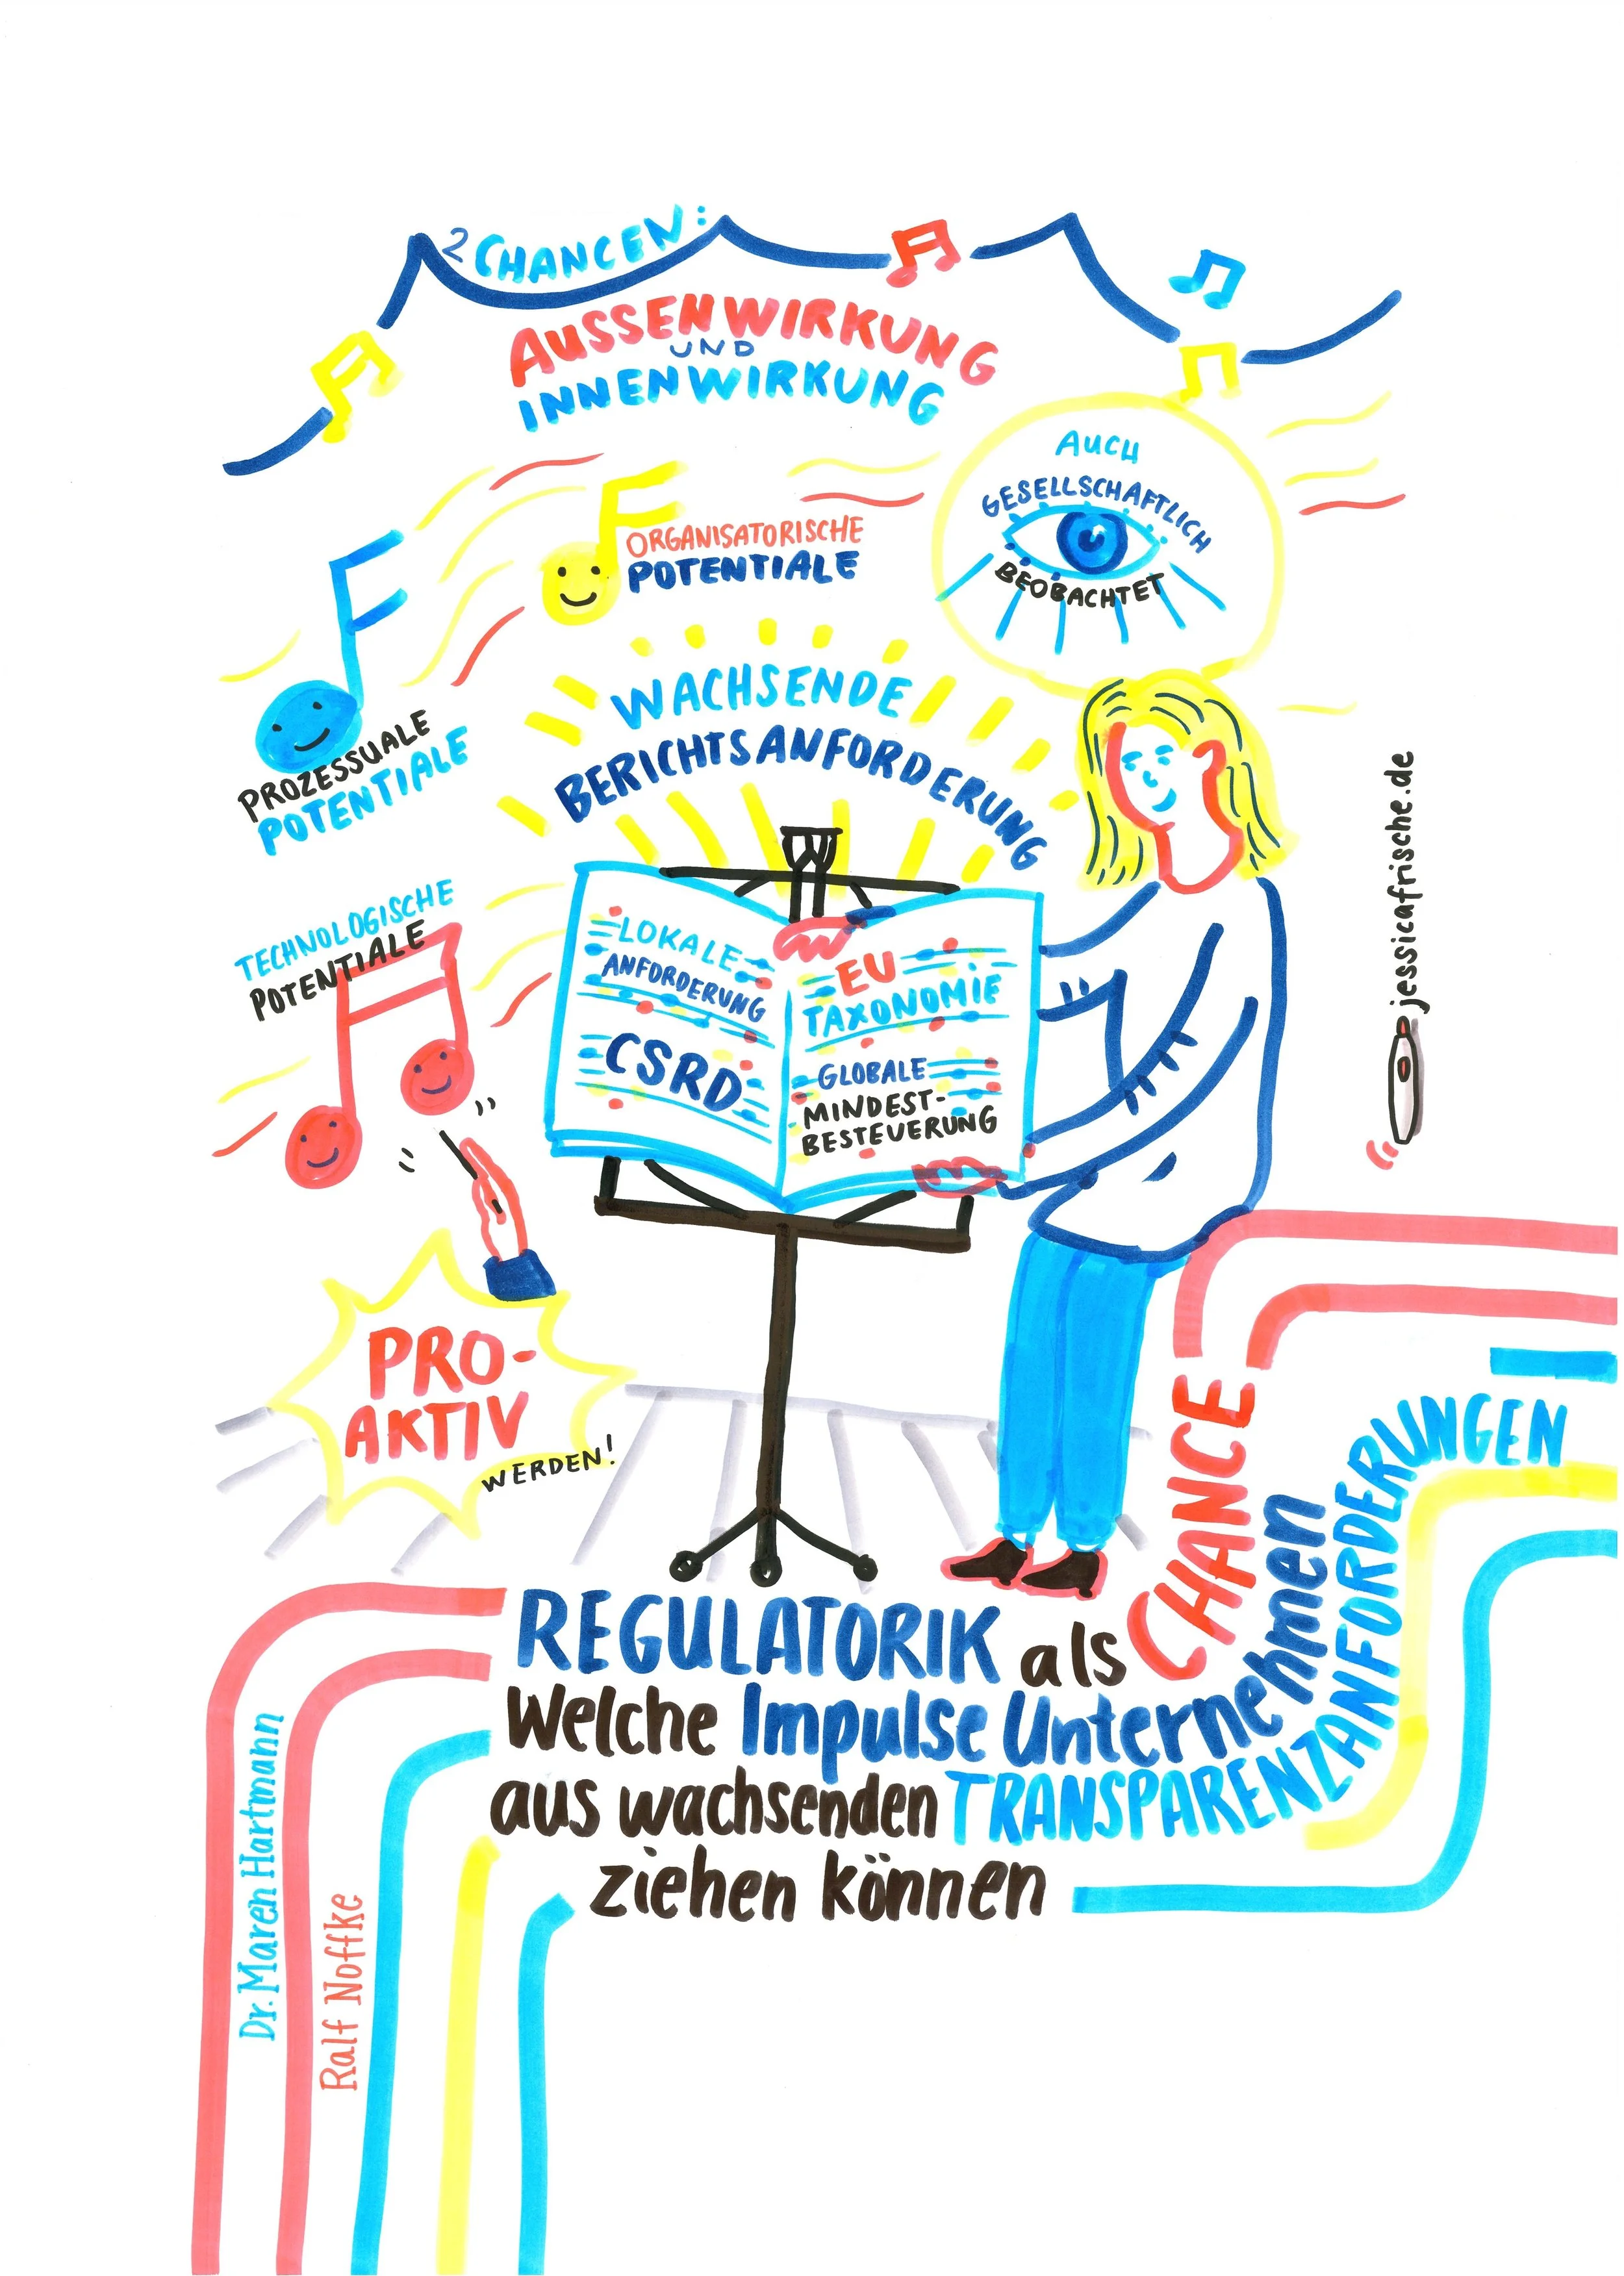 2 CHANCEN:
AUSSENWIRKUNG
UND
INNENWIRKUNG
AUCH
GESELLSCHAFTLICH
BEOBACHTET
ORGANISATORISCHE
POTENTIALE
PROZESSUALE
POTENTIALE
WACHSENDE
BERICHTSANFORDERUNG
TECHNOLOGISCHE
POTENTIALE
LOKALE
ANFORDERUNG
CSRD
EU
TAXONOMIE
GLOBALE
MINDEST-
BESTEUERUNG
jessicafrische.de
PRO-
AKTIV
WERDEN!
REGULATORIK als CHANCE
Welche Impulse Unternehmen
aus wachsenden TRANSPARENZANFORDERUNGEN
ziehen können
Dr. Maren Hartmann
Ralf Noffke